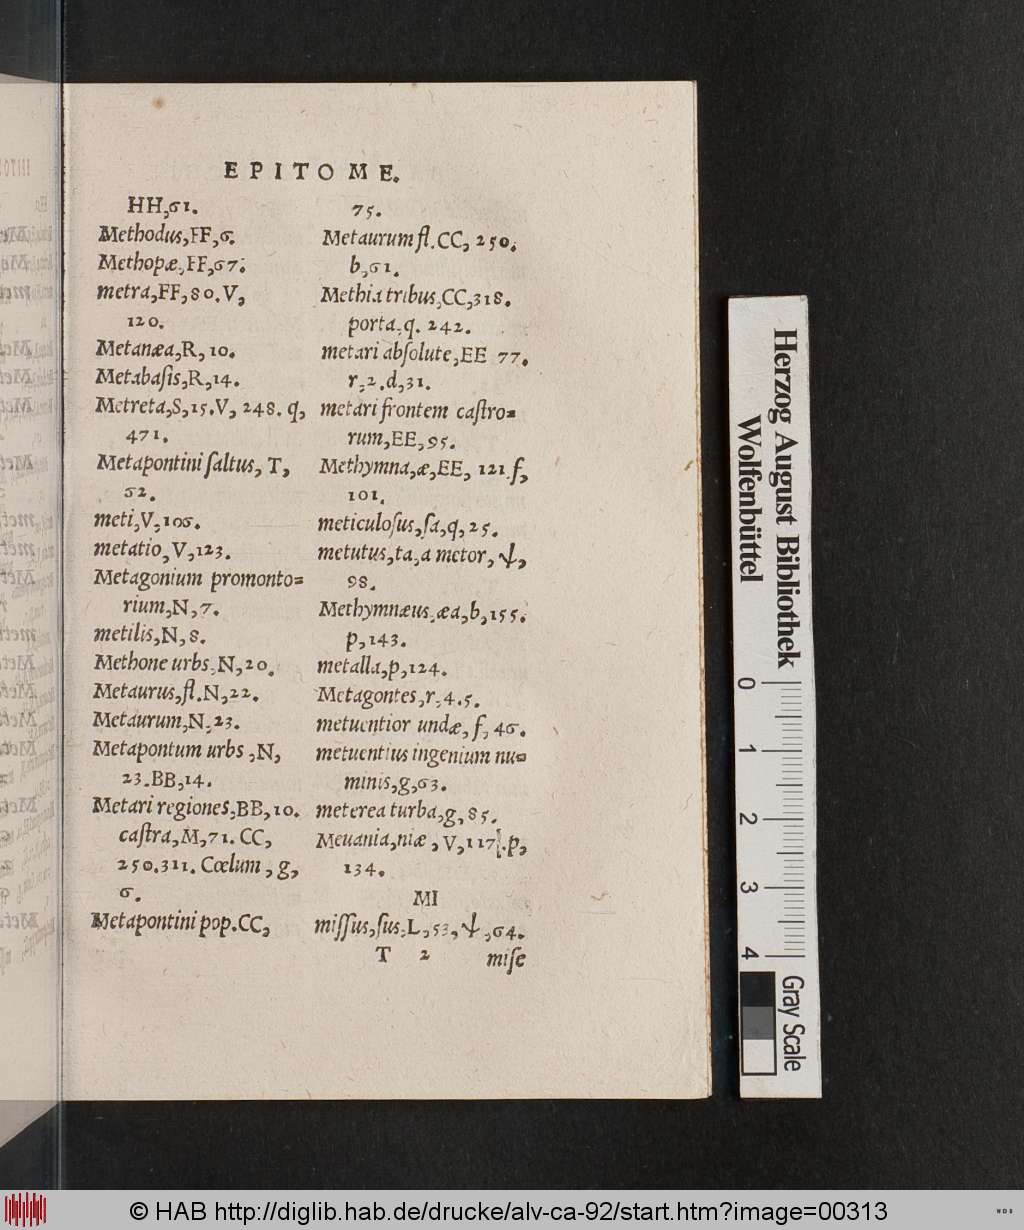 EPITOME.
HH,61.
Methodus,FF,6.
Methopæ,FF,67.
metra,FF,80.V,
120.
Metanæa,R,10.
Metabaſis,R,14.
Metreta,S,15.V, 248. q,
471.
Metapontini ſaltus, T,
62.
meti,V,106.
metatio,V,123.
Metagonium promonto=
rium,N,7.
metilis,N,8.
Methone urbs,N,20.
Metaurus,fl.N,22.
Metaurum,N,23.
Metapontum urbs ,N,
23.BB,14.
Metari regiones,BB,10.
caſtra,M,71. CC,
250.311. Cœlum , g,
6.
Metapontini pop.CC,
75.
Metaurum fl.CC, 250.
b,61.
Methia tribus,CC,318.
porta,q. 242.
metari abſolute,EE 77.
r,2.d,31.
metari frontem caſtro=
rum,EE,95.
Methymna,æ,EE, 121.f,
101.
meticuloſus,ſa,q,25.
metutus,ta,a metor, ψ,
98.
Methymnæus,æa,b,155.
p,143.
metalla,p,124.
Metagontes,r,4.5.
metuentior undæ, f, 46.
metuentius ingenium nu=
minis,g,63.
meterea turba,g,85.
Meuania,niæ, V,117.p,
134.
MI
miſſus,ſus,L,53, ψ ,64.
T 2 miſe
Herzog August Bibliothek
Wolfenbüttel
0 1 2 3 4
Gray Scale
© HAB http://diglib.hab.de/drucke/alv-ca-92/start.htm?image=00313